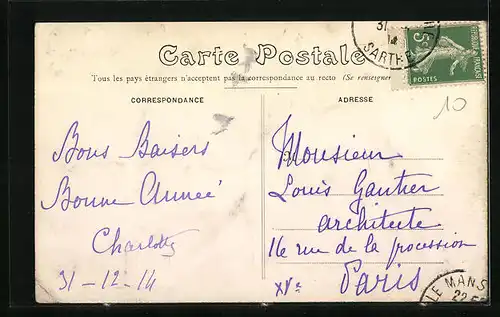 31
14
SARTHE
5c
POSTES
Carte Postale
Tous les pays étrangers n'acceptent pas la correspondance au recto (Se renseigner
CORRESPONDANCE
ADRESSE
10
Bons Baisers
Bonne Année
Charlotte
31-12-14
Monsieur
Louis Gautier
architecte
16 rue de la procession
XVe
Paris
LE MANS
22